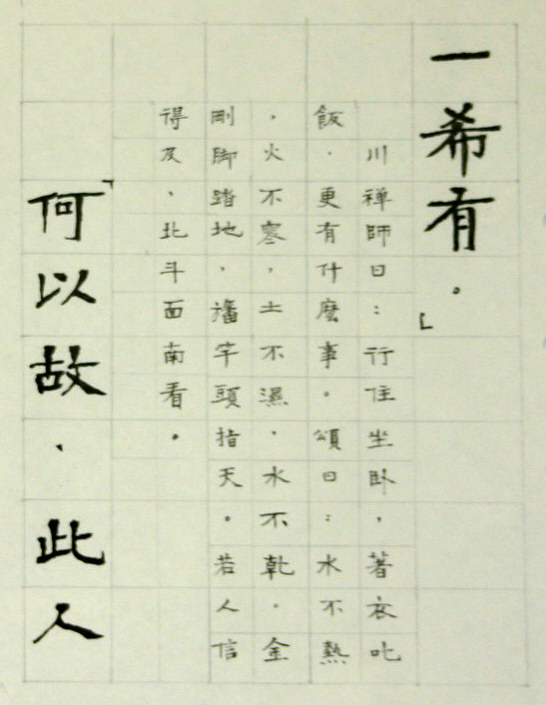 一希有。」
川禅師曰：行住坐卧，著衣吃
飯．更有什麼事。頌曰：水不熱
，火不寒，土不濕．水不乾．金
剛脚踏地．旛竿頭指天。若人信
得及、北斗面南看。
「何以故．此人